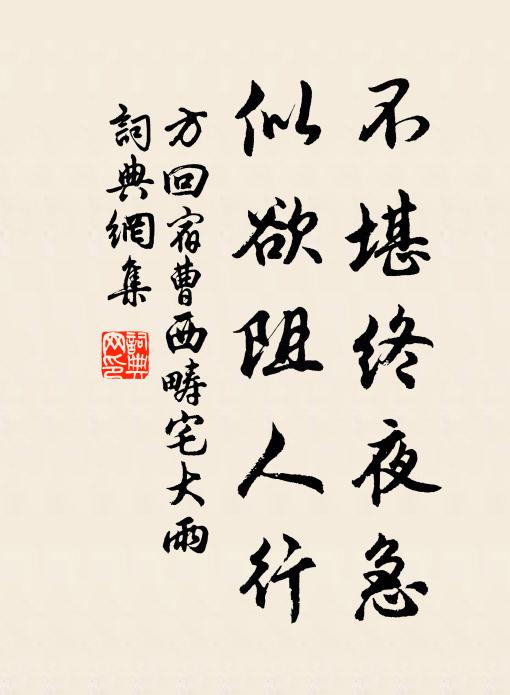 不堪终夜急
似欲阻人行
方回宿曹西畴宅大雨
詞典網集
詞典網印